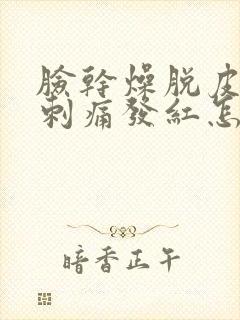 臉幹燥脱皮
刺痛發紅怎
暗香正午